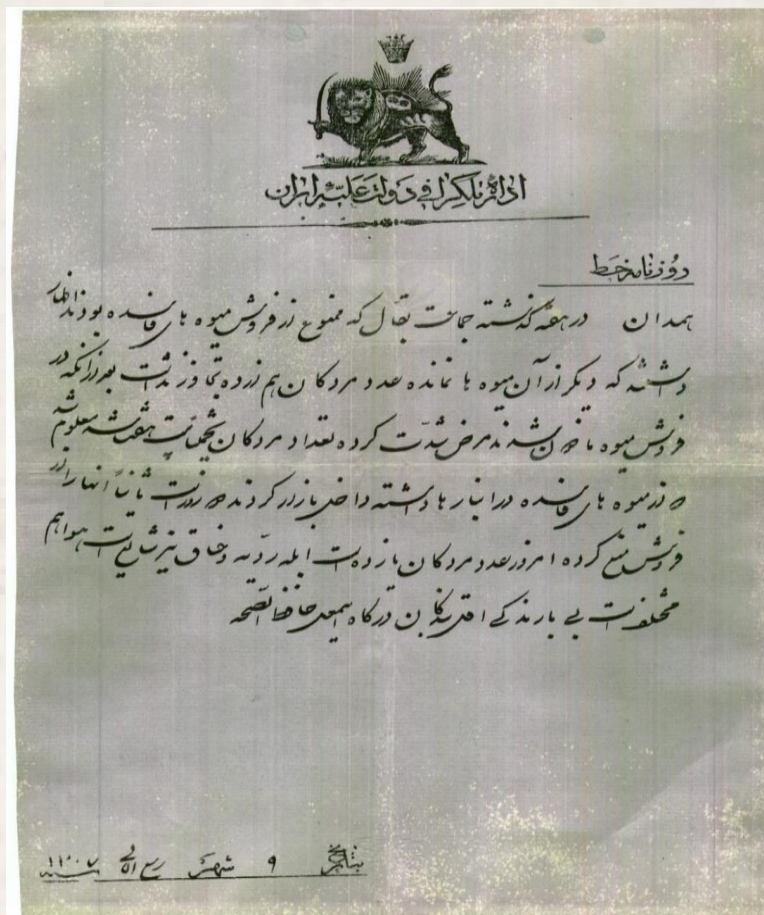 اداره تلگرافی دولت علیه ایران
روزنامه خط
همدان در هفته گذشته جماعت بقال که ممنوع از فروش میوه های فاسده بودند اظهار
داشته که دیگر از آن میوه ها نمانده عدد مردگان هم از ده تجاوز نداشت بعد از آنکه در
فروش میوه ماذون شدند مرض شدت کرده تعداد مردگان به هفتاد رسید معلوم شد
که از میوه های فاسده در انبارها داشته داخل بازار کردند ثانیاً آنها را از
فروش منع کرده امروز عدد مردگان یازده است آبله و خناق نیز شایع است هوا هم
مختلف است بی بارندگی اقل بندگان درگاه اسمعیل حافظ الصحه
بتاریخ ۹ شهر ربیع الاول سنه